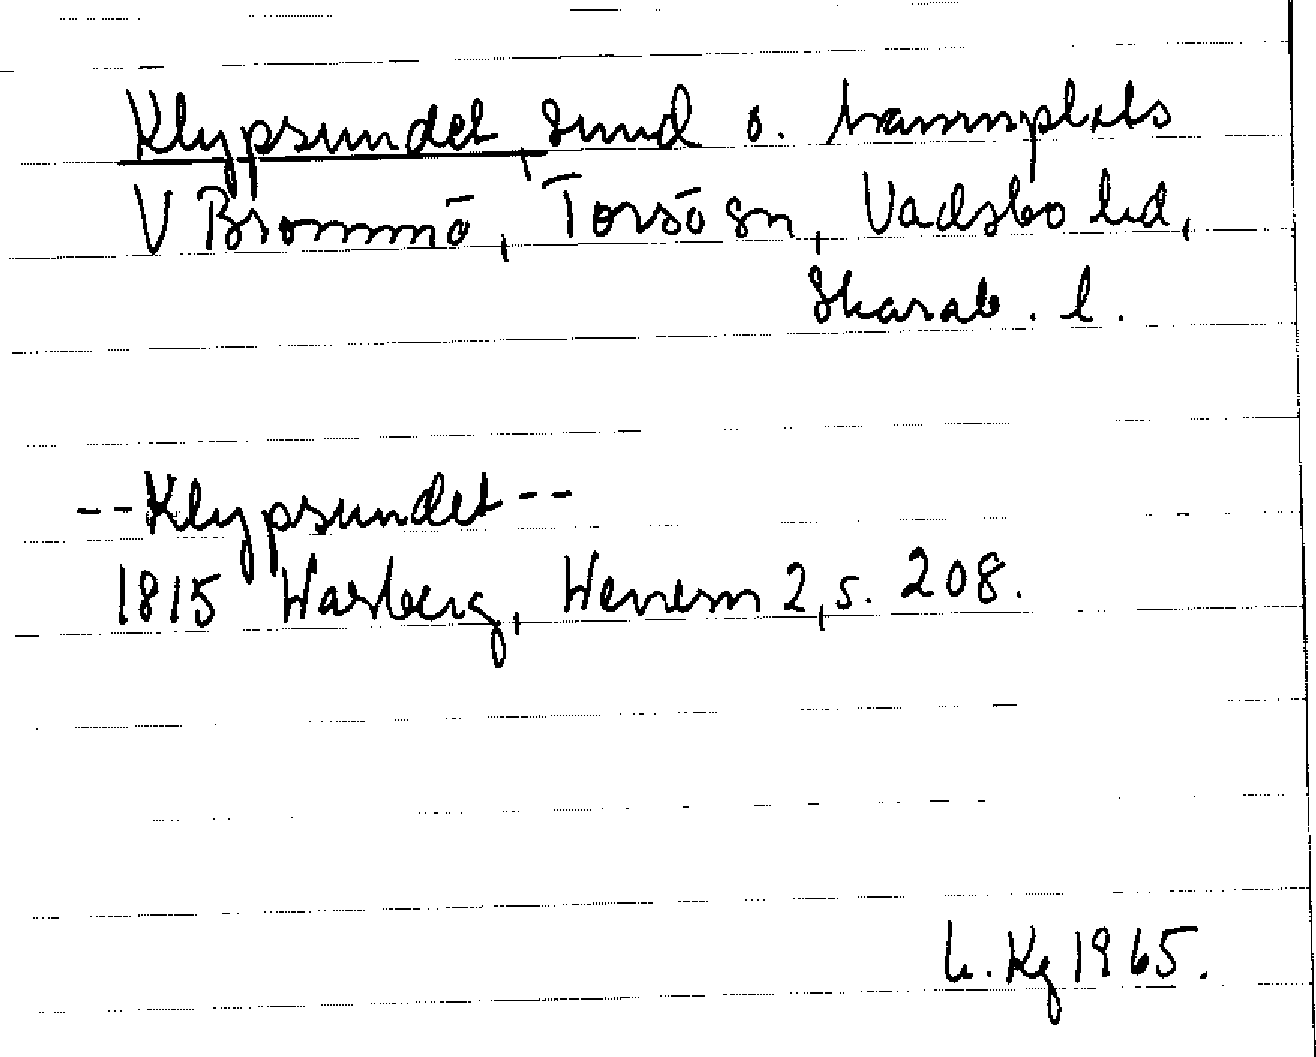 Klypsundet, sund o. hamnplats
V Brommö, Torsö sn, Vadsbo hd,
Skarab. l.
--Klypsundet--
1815 Warberg, Wenern 2, s. 208.
L. Kg 1965.